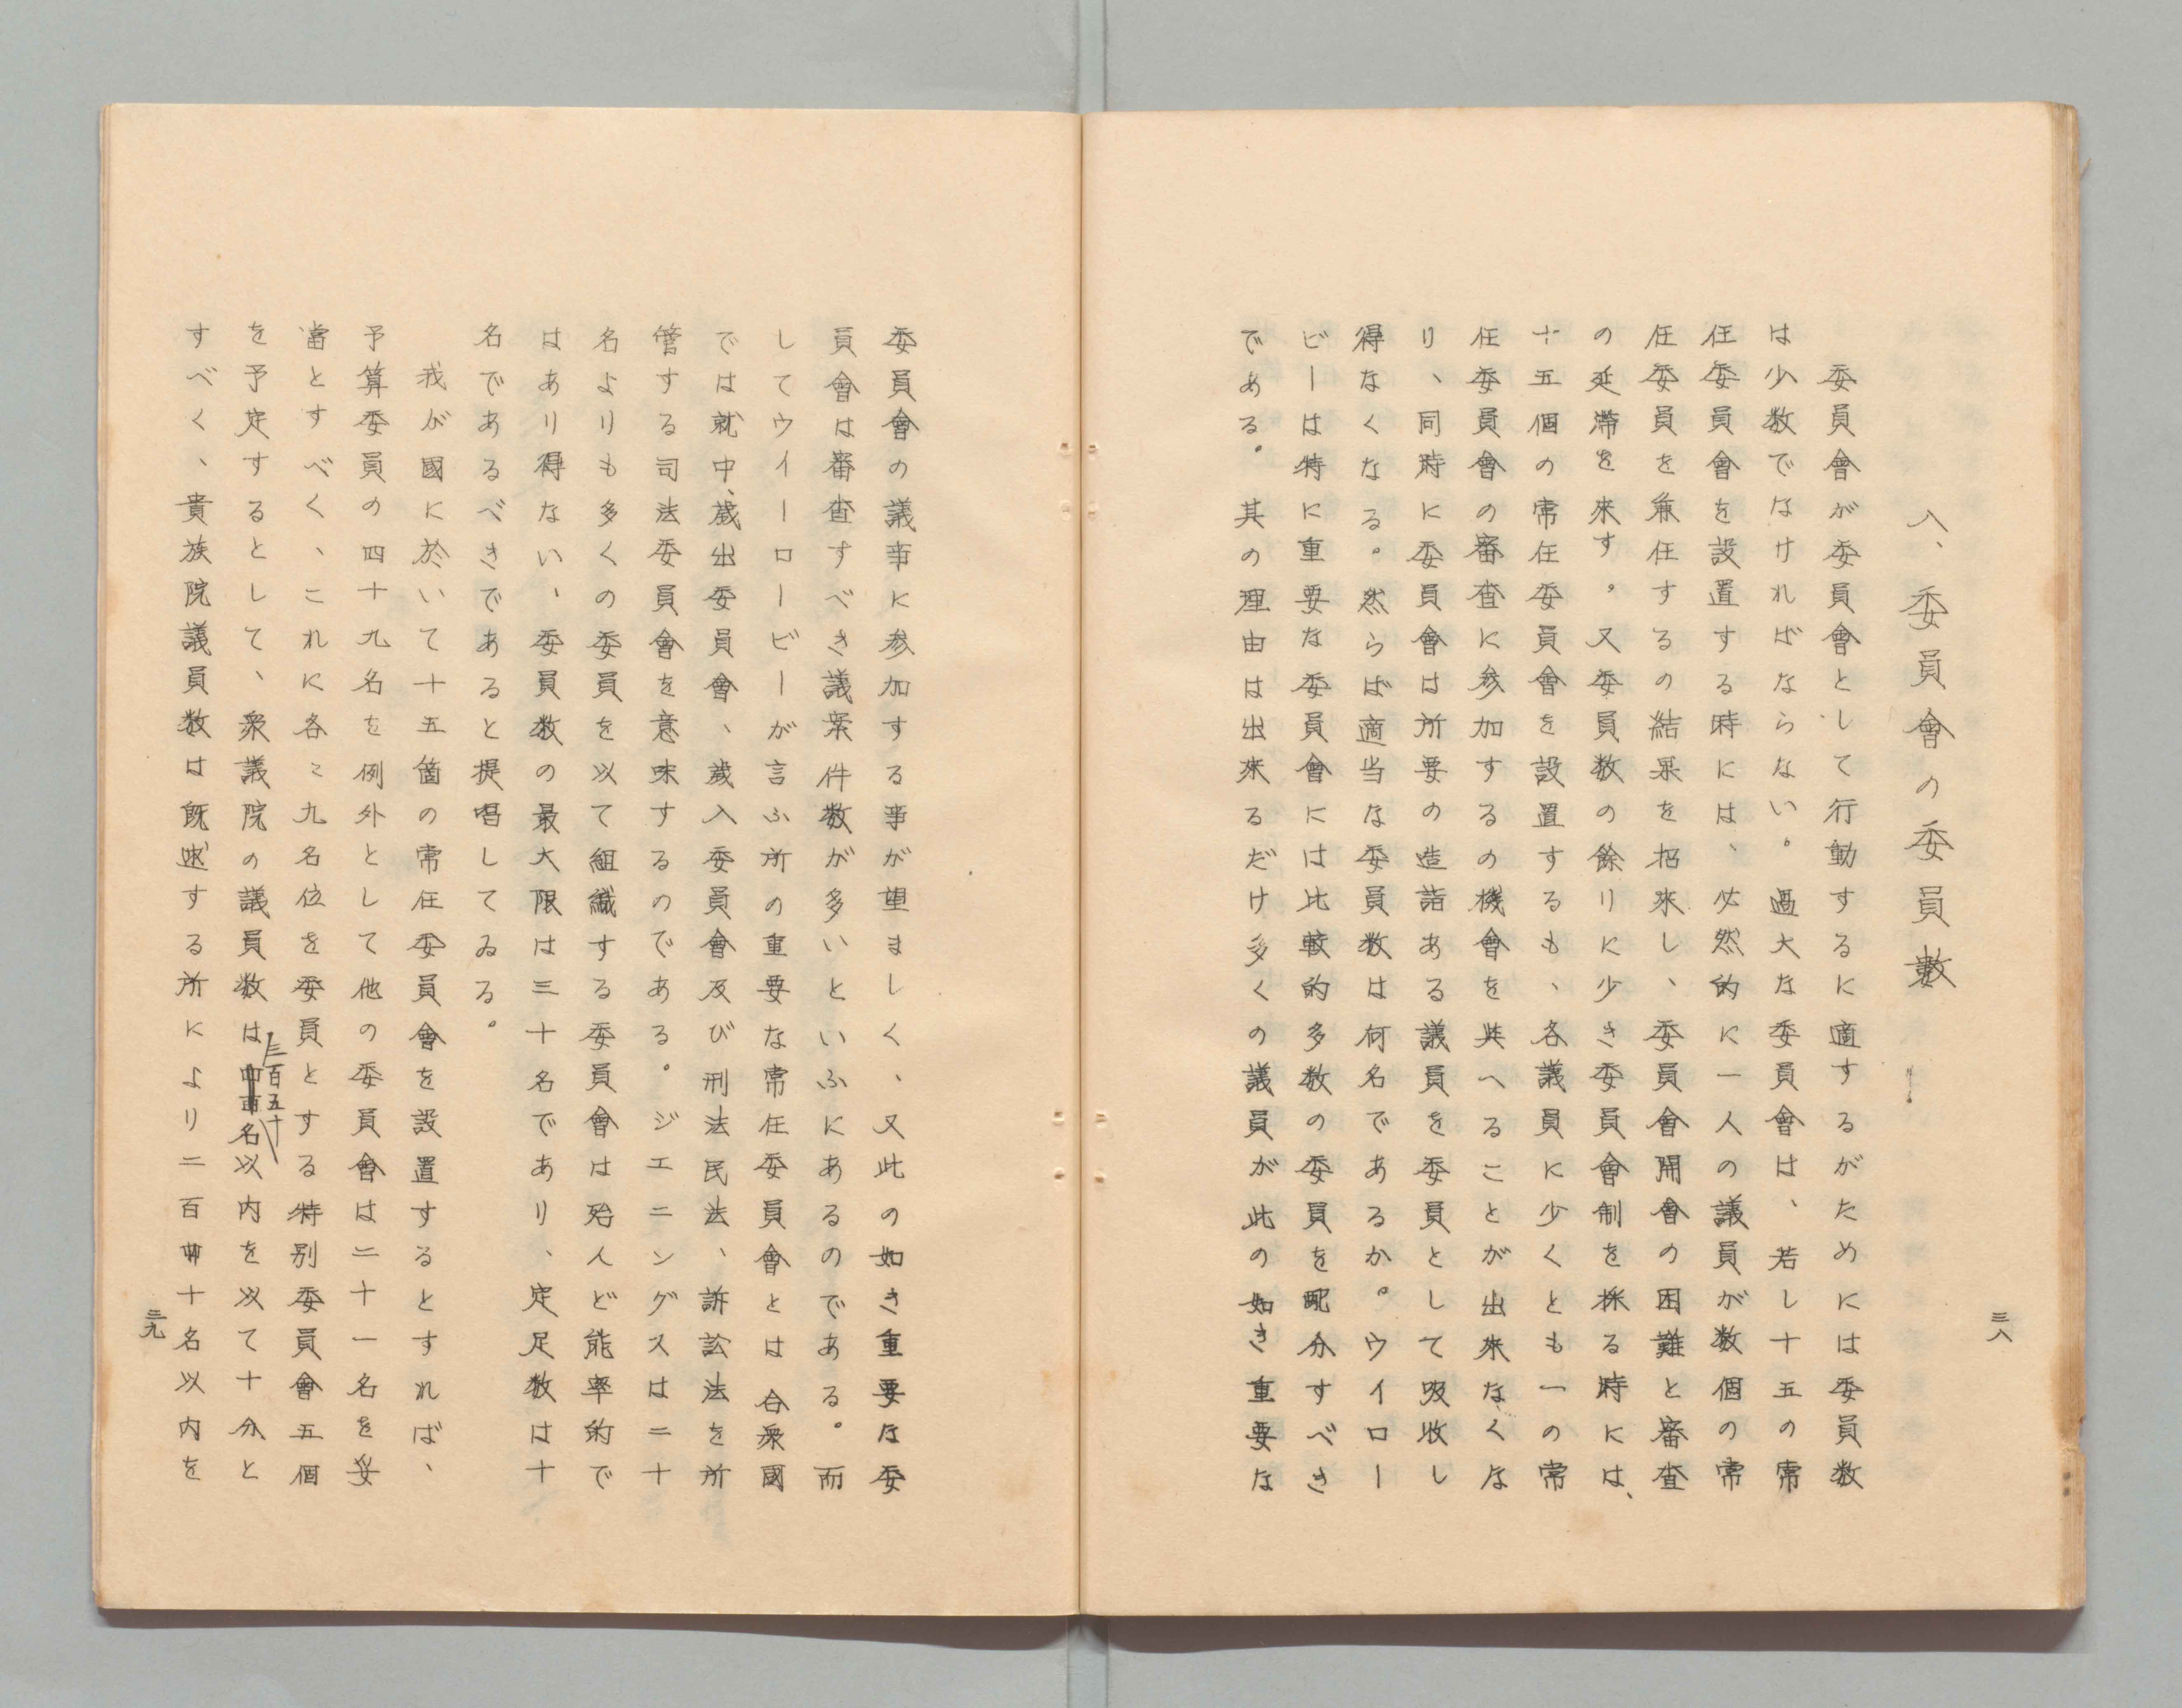 三八
八、委員會の委員數
委員會が委員會として行動するに適するがためには委員数
は少数でなければならない。過大な委員會は、若し十五の常
任委員會を設置する時には、必然的に一人の議員が数個の常
任委員を兼任するの結果を招来し、委員會開會の困難と審査
の延滞を来す。又委員数の餘りに少き委員會制を採る時には、
十五個の常任委員會を設置するも、各議員に少くとも一の常
任委員會の審査に参加するの機會を與へることが出来なくな
り、同時に委員會は所要の造詣ある議員を委員として吸收し
得なくなる。然らば適当な委員数は何名であるか。ウイロー
ビーは特に重要な委員會には比較的多数の委員を配分すべき
である。其の理由は出来るだけ多くの議員が此の如き重要な
委員會の議事に参加する事が望ましく、又此の如き重要な委
員會は審査すべき議案件数が多いといふにあるのである。而
してウイーロービーが言ふ所の重要な常任委員會とは合衆國
では就中、歳出委員會、歳入委員會及び刑法民法、訴訟法を所
管する司法委員會を意味するのである。ジエニングスは二十
名よりも多くの委員を以て組織する委員會は殆んど能率的で
はあり得ない、委員数の最大限は三十名であり、定足数は十
名であるべきであると提唱してゐる。
我が國に於いて十五箇の常任委員會を設置するとすれば、
予算委員の四十九名を例外として他の委員會は二十一名を妥
當とすべく、これに各〻九名位を委員とする特別委員會五個
を予定するとして、衆議院の議員数は三百五十名以内を以て十分と
すべく、貴族院議員数は既述する所により二百卅十名以内を
三九